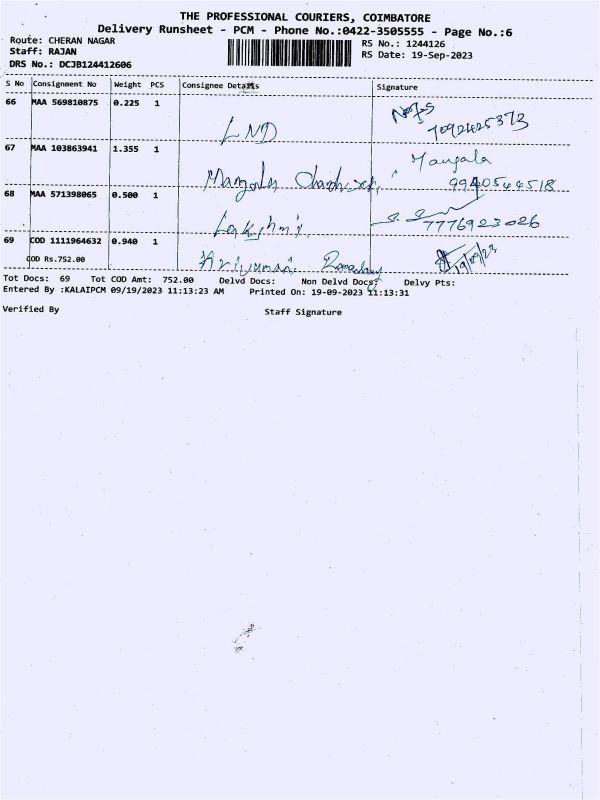 THE PROFESSIONAL COURIERS, COIMBATORE
Delivery Runsheet - PCM - Phone No.:0422-3505555 - Page No.:6
Route: CHERAN NAGAR
RS No.: 1244126
Staff: RAJAN
RS Date: 19-Sep-2023
DRS No.: DCJB124412606
S No Consignment No Weight PCS Consignee Details Signature
66 MAA 569810875 0.225 1 LND
7092425373
67 MAA 103863941 1.355 1 Mangala
9940544518
68 MAA 571398065 0.500 1 Lakshmi
7776923026
69 COD 1111964632 0.940 1
COD Rs.752.00
19/09/23
Tot Docs: 69 Tot COD Amt: 752.00 Delvd Docs: Non Delvd Docs: Delvy Pts:
Entered By :KALAIPCM 09/19/2023 11:13:23 AM Printed On: 19-09-2023 11:13:31
Verified By Staff Signature